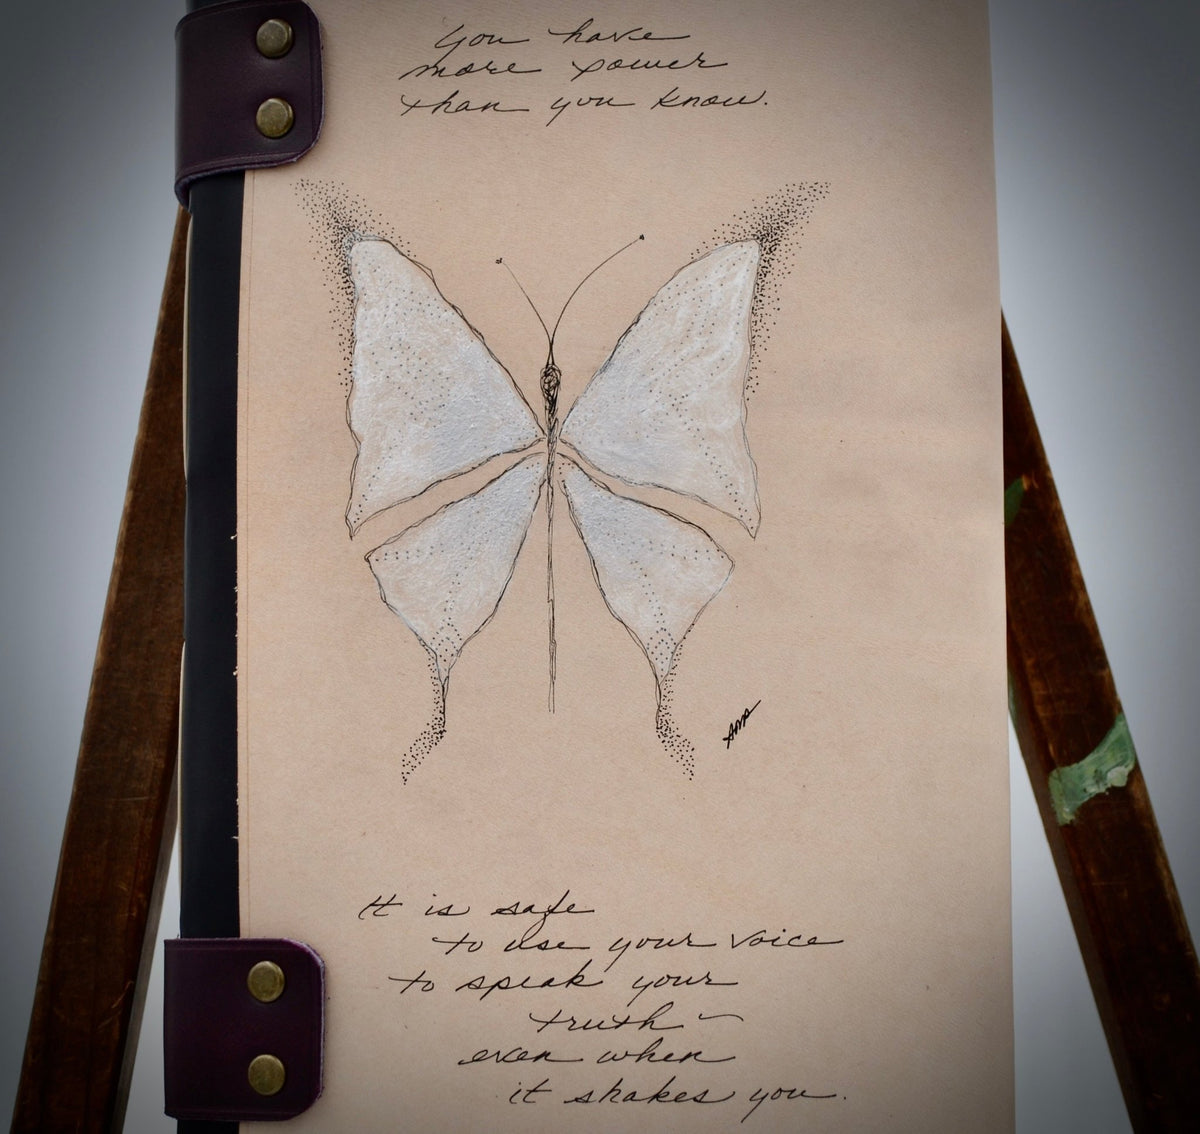 You have
more power
than you know.
It is safe
to use your voice
to speak your
truth –
even when
it shakes you.